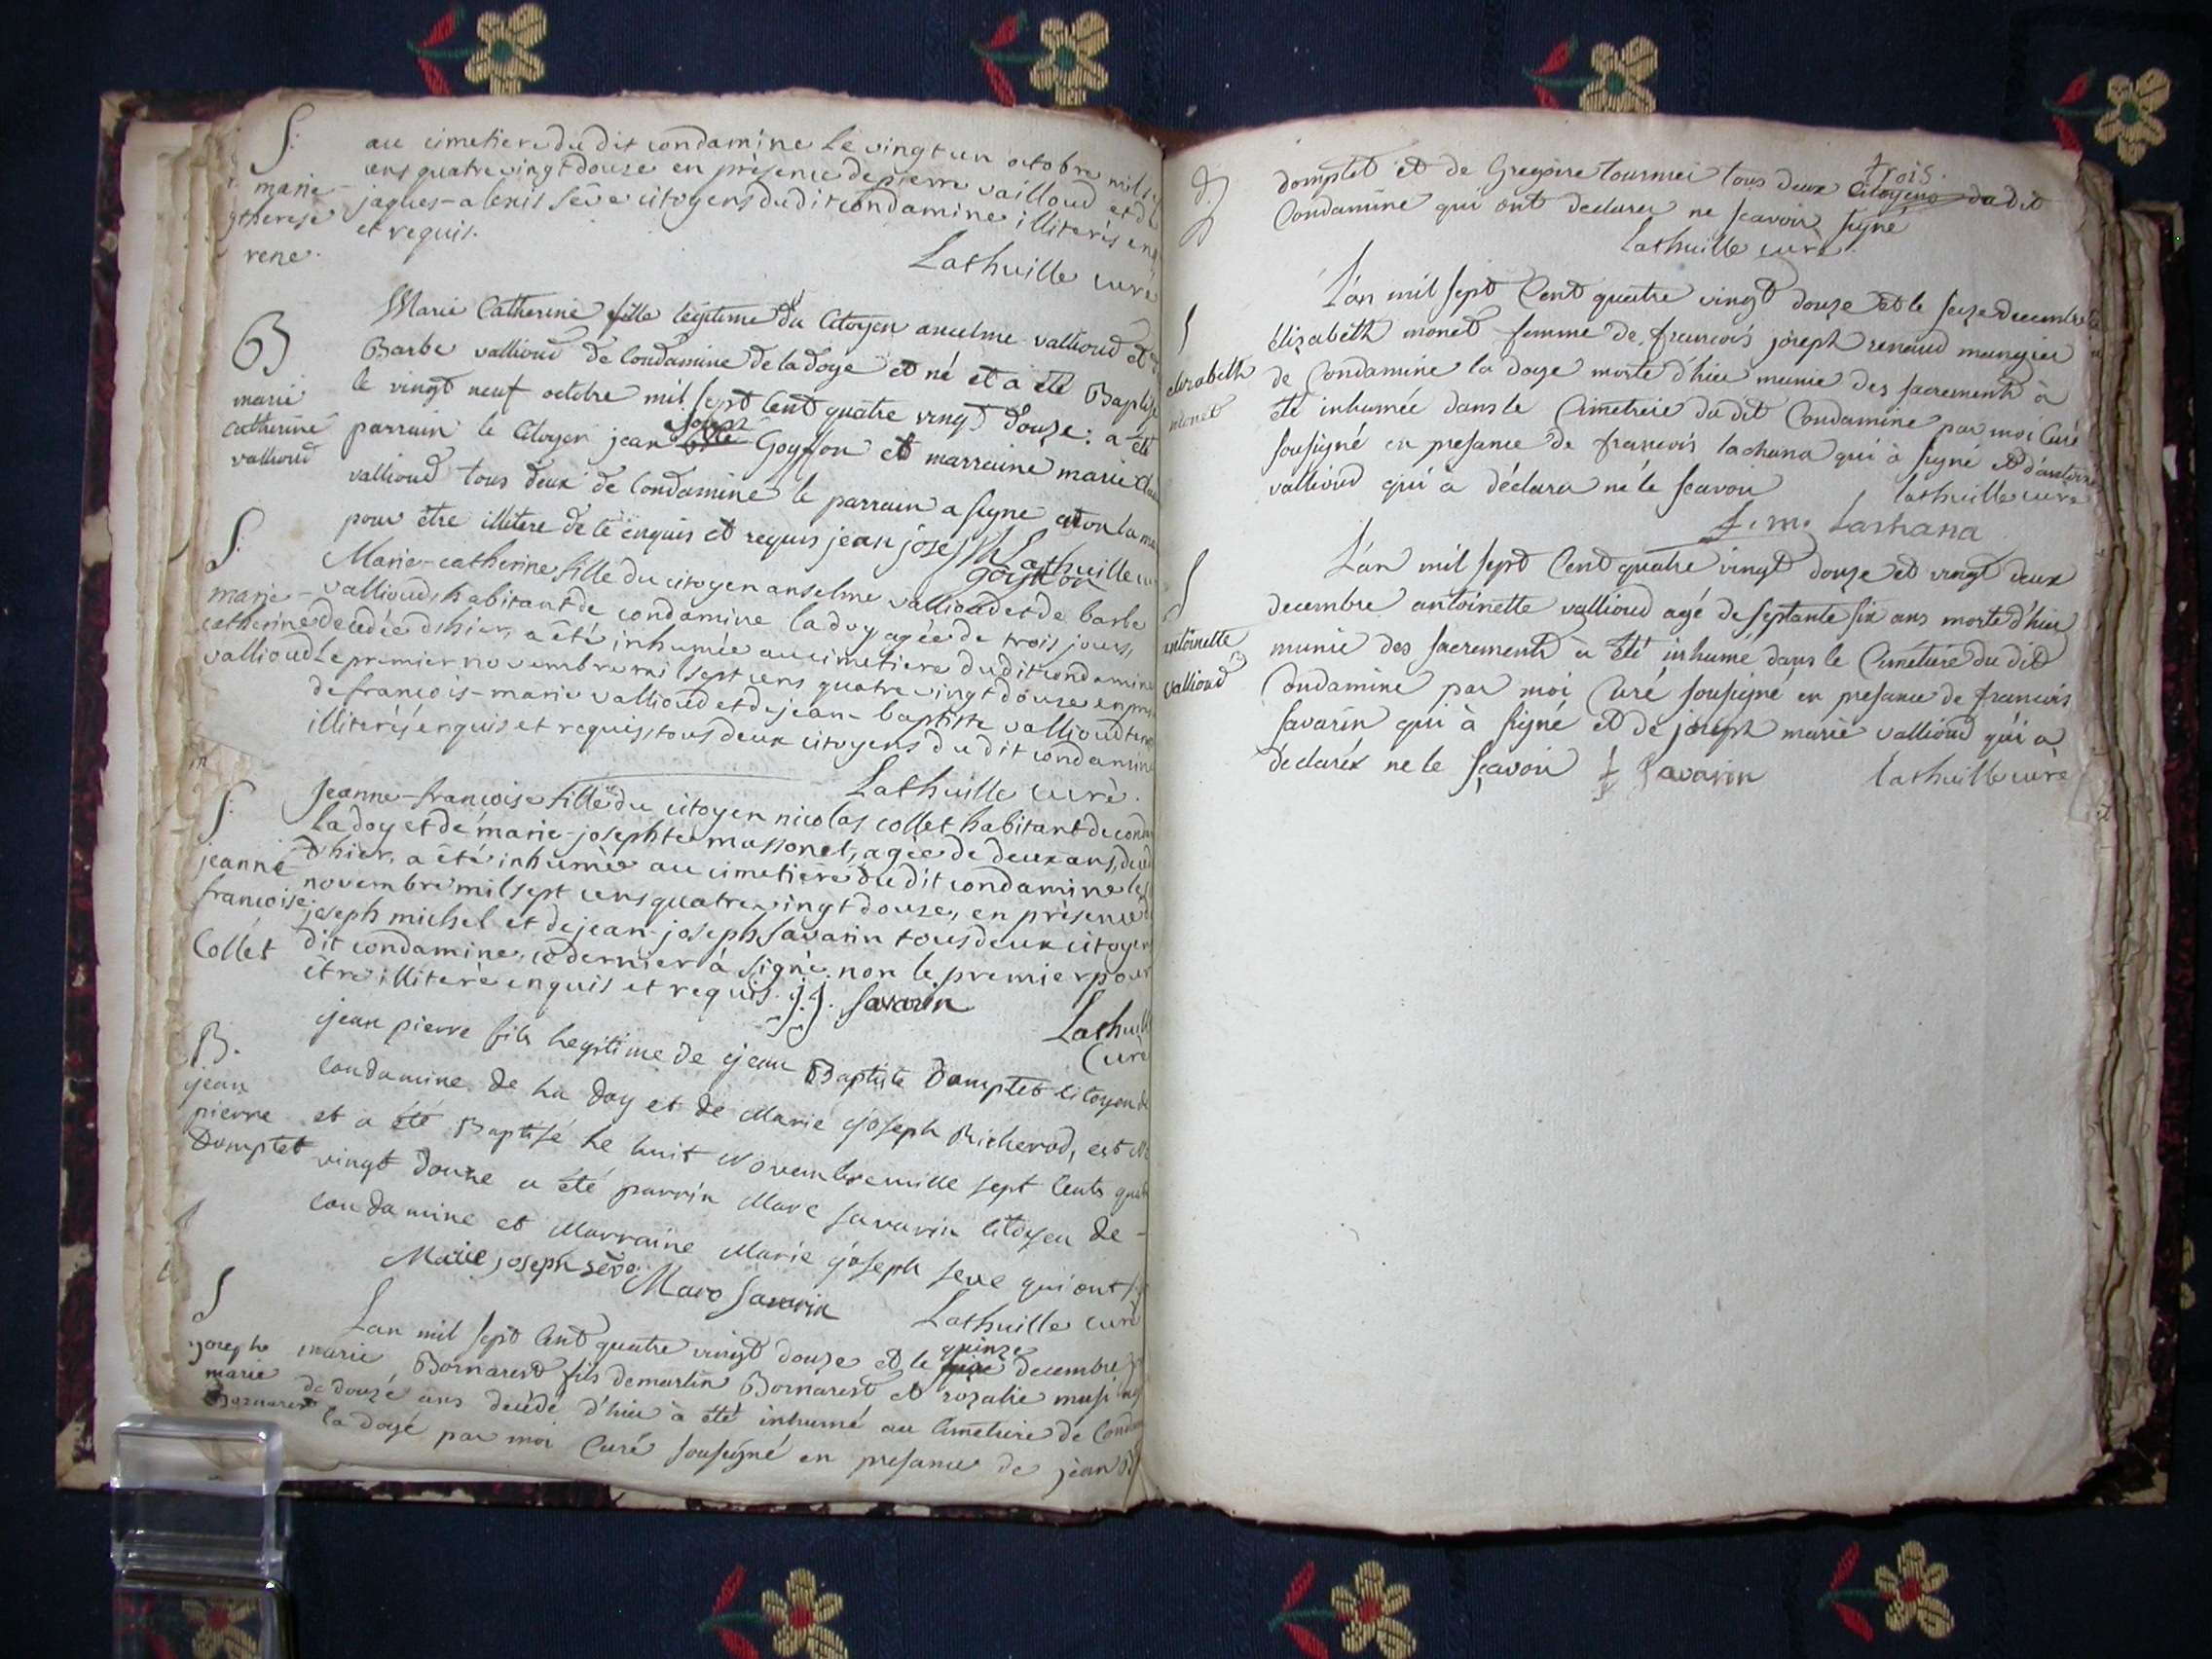 S.
marie
therese
rene.
au cimetiere du dit condamine le vingt un octobre mil
cens quatre vingt douze en présence de pierre vailloud et de
jaques-alexis sêve citoyens du dit condamine illiterés
et requis.
Lathuille curé
B
marie
catherine
vallioud
Marie Catherine fille légitime du Citoyen ancelme vallioud et de
Barbe vallioud de Condamine de la doye et né et a été Baptisé
le vingt neuf octobre mil sept Cent quatre vingt douze: a été
parrain le Citoyen jean Goyffon et marraine marie
vallioud tous deux de Condamine le parrain a signé
pour être illitere de ce enquis et requis jean joseph goyffon
Lathuille
S.
marie-
catherine
vallioud
Marie-catherine fille du citoyen anselme vallioud et de barbe
vallioud, habitant de condamine la doy agée de trois jours,
decedée d'hier, a êté inhumée au cimetiere du dit condamine
le premier novembre mil sept cens quatre vingt douze en
de françois-marie vallioud et de jean-baptiste vallioud
illiterés enquis et requis, tous deux citoyens du dit condamine
Lathuille curé.
S.
jeanne
françoise
Collet
Jeanne-françoise fille du citoyen nicolas collet habitant de
la doy et de marie-josephte massonet, agée de deux ans,
d'hier, a êté inhumée au cimetiere du dit condamine le
novembre mil sept cens quatre vingt douze, en présence de
joseph michel et de jean-joseph savarin tous deux citoyens
dit condamine, ce dernier à signé, non le premier pour
être illiteré enquis et requis. j.j. Savarin
Lathuille
Curé
B.
jean
pierre
Domptet
jean pierre fils legitime de jean Baptiste Domptet citoyen de
Condamine de La doy et de Marie joseph Richerod, est né
et a été Baptisé Le huit Novembre mille sept Cents
vingt douze a été parrin Marc savarin citoyen de -
Condamine et Marraine Marie joseph seve qui ont
Marie joseph sève
Marc Savarin
Lathuille curé
S
joseph
marie
Bornarest
Lan mil sept Cent quatre vingt douze et le quinze decembre
marie Bornarest fils de martin Bornarest et rozalie
de douze ans decédé d'hier à été inhumé au Cimetiere de
la doye par moi Curé sousigné en presance de jean
domptet et de Gregoire tournier tous deux Citoyens du dit
trois.
Condamine qui ont declarer ne scavoir signé
Lathuille curé.
S
elizabeth
monet
L'an mil sept Cent quatre vingt douze et le seize decembre
elizabeth monet femme de francois joseph renaud
de Condamine la doye morte d'hier munie des sacrements à
été inhumée dans le Cimetiere du dit Condamine par moi Curé
sousigné en presance de francois lachana qui à signé et d'antoine
vallioud qui à déclarer né le scavoir
Lathuille curé
f. m. Lachana
S
antoinette
vallioud
L'an mil sept Cent quatre vingt douze et vingt deux
decembre antoinette vallioud agé de septante six ans morte d'hier
munie des sacrements à été inhume dans le Cimetiere du dit
Condamine par moi Curé sousigné en presance de francois
savarin qui à signé et de joseph marie vallioud qui a
déclaréx ne le sçavoir
f Savarin
Lathuille curé